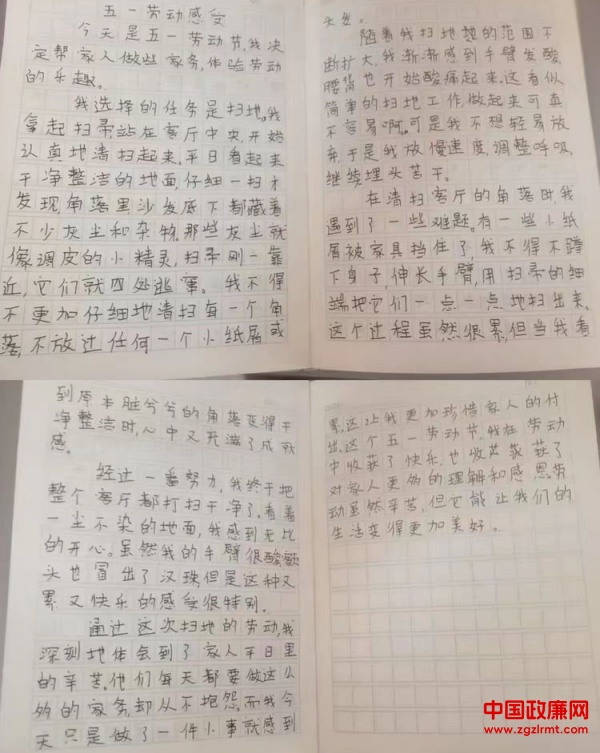 五一劳动感受
今天是五一劳动节,我决
定帮家人做些家务,体验劳动
的乐趣。
我选择的任务是扫地。我
拿起扫帚站在客厅中央,开始
认真地清扫起来。平日看起来
干净整洁的地面,仔细一扫才
发现,角落里,沙发底下都藏着
不少灰尘和杂物。那些灰尘就
像调皮的小精灵,扫帚刚一靠
近,它们就四处逃窜。我不得
不更加仔细地清扫每一个角
落,不放过任何一个小纸屑或
头发。
随着我扫地的范围不
断扩大,我渐渐感到手臂发酸,
腰背也开始酸痛起来。这看似
简单的扫地工作,做起来可真
不容易啊。可是我不想轻易放
弃,于是我放慢速度,调整呼吸,
继续埋头苦干。
在清扫客厅的角落时,我
遇到了一些难题。有一些小纸
屑被家具挡住了,我不得不蹲
下身子,伸长手臂,用扫帚的细
端把它们一点一点地扫出来。
这个过程虽然很累,但当我看
到原本脏兮兮的角落变得干
净整洁时,心中又充满了成就
感。
经过一番努力,我终于把
整个客厅都打扫干净了。看着
一尘不染的地面,我感到无比
的开心。虽然我的手臂很酸,额
头也冒出了汉珠,但是这种又
累又快乐的感受很特别。
通过这次扫地的劳动,我
深刻地体会到了家人平日里
的辛苦。他们每天都要做这么
多的家务,却从不抱怨。而我今
天只是做了一件小事就感到
累,这让我更加珍惜家人的付
出。这个五一劳动节,我在劳动
中收获了快乐,也收获了
对家人更多的理解和感恩。劳
动虽然辛苦,但它能让我们的
生活变得更加美好。
中国政廉网
www.zgzlrmt.com